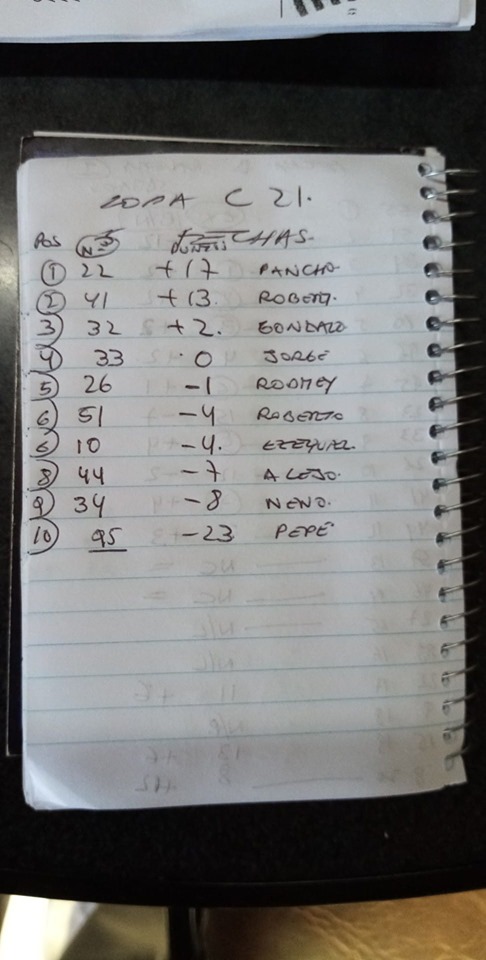 COPA C 21.
POS Nº FECHAS.
PUNTOS
1 22 +17 PANCHO.
2 41 +13. ROBERTO.
3 32 +2. GONDALO
4 33 0 JORGE
5 26 -1 RODNEY
6 51 -4 ROBERTO
6 10 -4. EZEQUIEL.
8 44 -7 ALEJO.
9 34 -8 NENO.
10 95 -23 PEPE